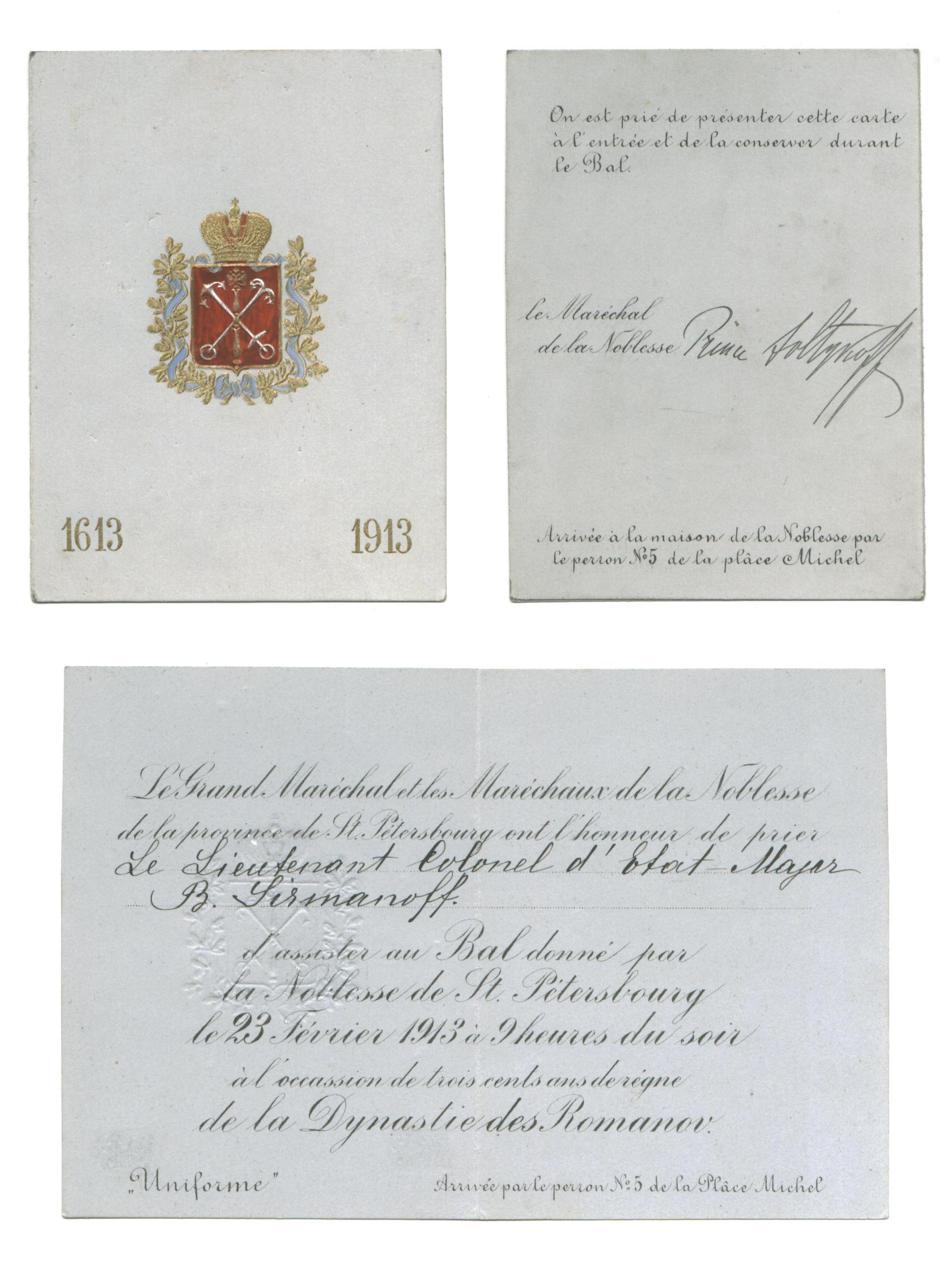 1613 1913
On est prié de présenter cette carte
à l'entrée et de la conserver durant
le Bal.
le Maréchal
de la Noblesse Prince Soltykoff
Arrivée à la maison de la Noblesse par
le perron №5 de la plâce Michel
Le Grand Maréchal et les Maréchaux de la Noblesse
de la province de St. Pétersbourg ont l'honneur de prier
Le Lieutenant Colonel d'Etat-Major
B. Sirmanoff.
d'assister au Bal donné par
la Noblesse de St. Pétersbourg
le 23 Février 1913 à 9 heures du soir
à l'occassion de trois cents ans de régne
de la Dynastie des Romanov.
„Uniforme" Arrivée par le perron №5 de la Plâce Michel